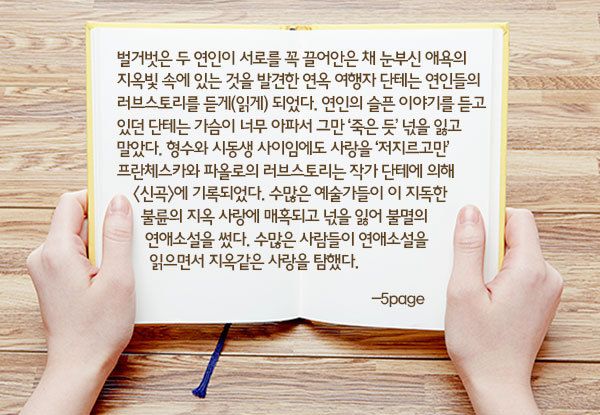 벌거벗은 두 연인이 서로를 꼭 끌어안은 채 눈부신 애욕의
지옥빛 속에 있는 것을 발견한 연옥 여행자 단테는 연인들의
러브스토리를 듣게(읽게) 되었다. 연인의 슬픈 이야기를 듣고
있던 단테는 가슴이 너무 아파서 그만 ‘죽은 듯’ 넋을 잃고
말았다. 형수와 시동생 사이임에도 사랑을 ‘저지르고만’
프란체스카와 파올로의 러브스토리는 작가 단테에 의해
〈신곡〉에 기록되었다. 수많은 예술가들이 이 지독한
불륜의 지옥 사랑에 매혹되고 넋을 잃어 불멸의
연애소설을 썼다. 수많은 사람들이 연애소설을
읽으면서 지옥같은 사랑을 탐했다.
–5page